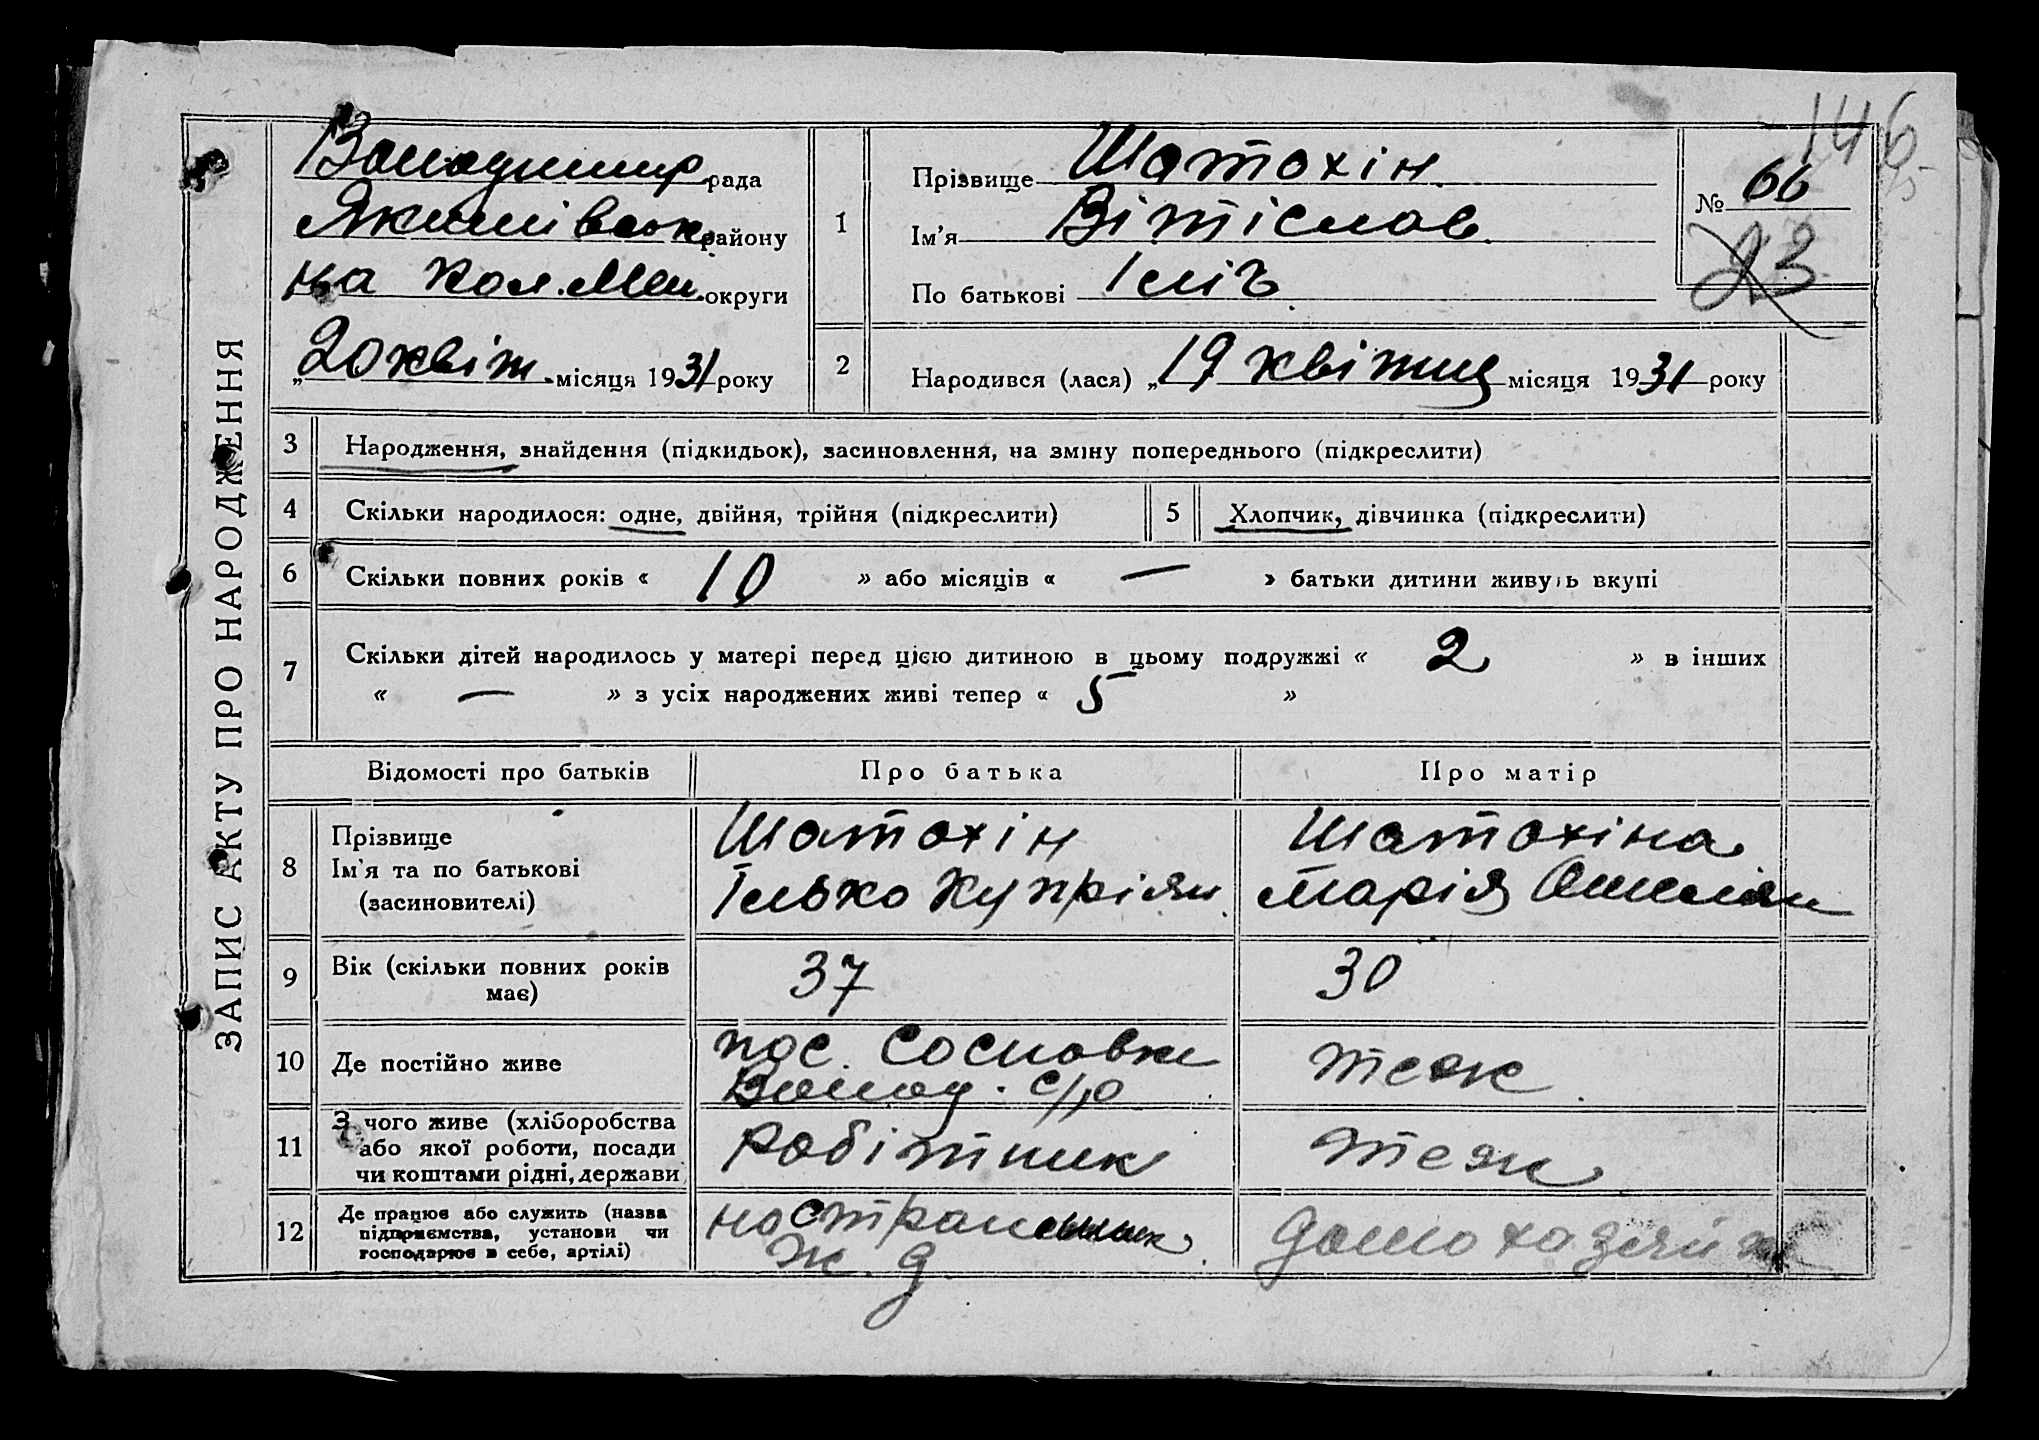 ЗАПИС АКТУ ПРО НАРОДЖЕННЯ
146
Володимир рада
Якимівськ району
на Кол. Мел. округи
„20 квіт. місяця 1931 року
1
Прізвище Шатохін
Ім'я Вітіслав
По батькові Ілліч
№ 66
23
2
Народився (лася) „19 квітня місяця 1931 року
3 Народження, знайдення (підкидьок), засиновлення, на зміну попереднього (підкреслити)
4 Скільки народилося: одне, двійня, трійня (підкреслити)
5 Хлопчик, дівчинка (підкреслити)
6 Скільки повних років « 10 » або місяців « — » батьки дитини живуть вкупі
7 Скільки дітей народилось у матері перед цією дитиною в цьому подружжі « 2 » в інших
« — » з усіх народжених живі тепер « 5 »
Відомості про батьків
Про батька
Про матір
8 Прізвище
Ім'я та по батькові
(засиновителі)
Шатохін
Ілько Купріян.
Шатохіна
Марія Омелян
9 Вік (скільки повних років
має)
37
30
10 Де постійно живе
пос. Сосновка
Волод. с/р
теж
11 З чого живе (хліборобства
або якої роботи, посади
чи коштами рідні, держави
робітник
теж
12 Де працює або служить (назва
підприємства, установи чи
господарює в себе, артілі)
ж. д.
домохазяйк